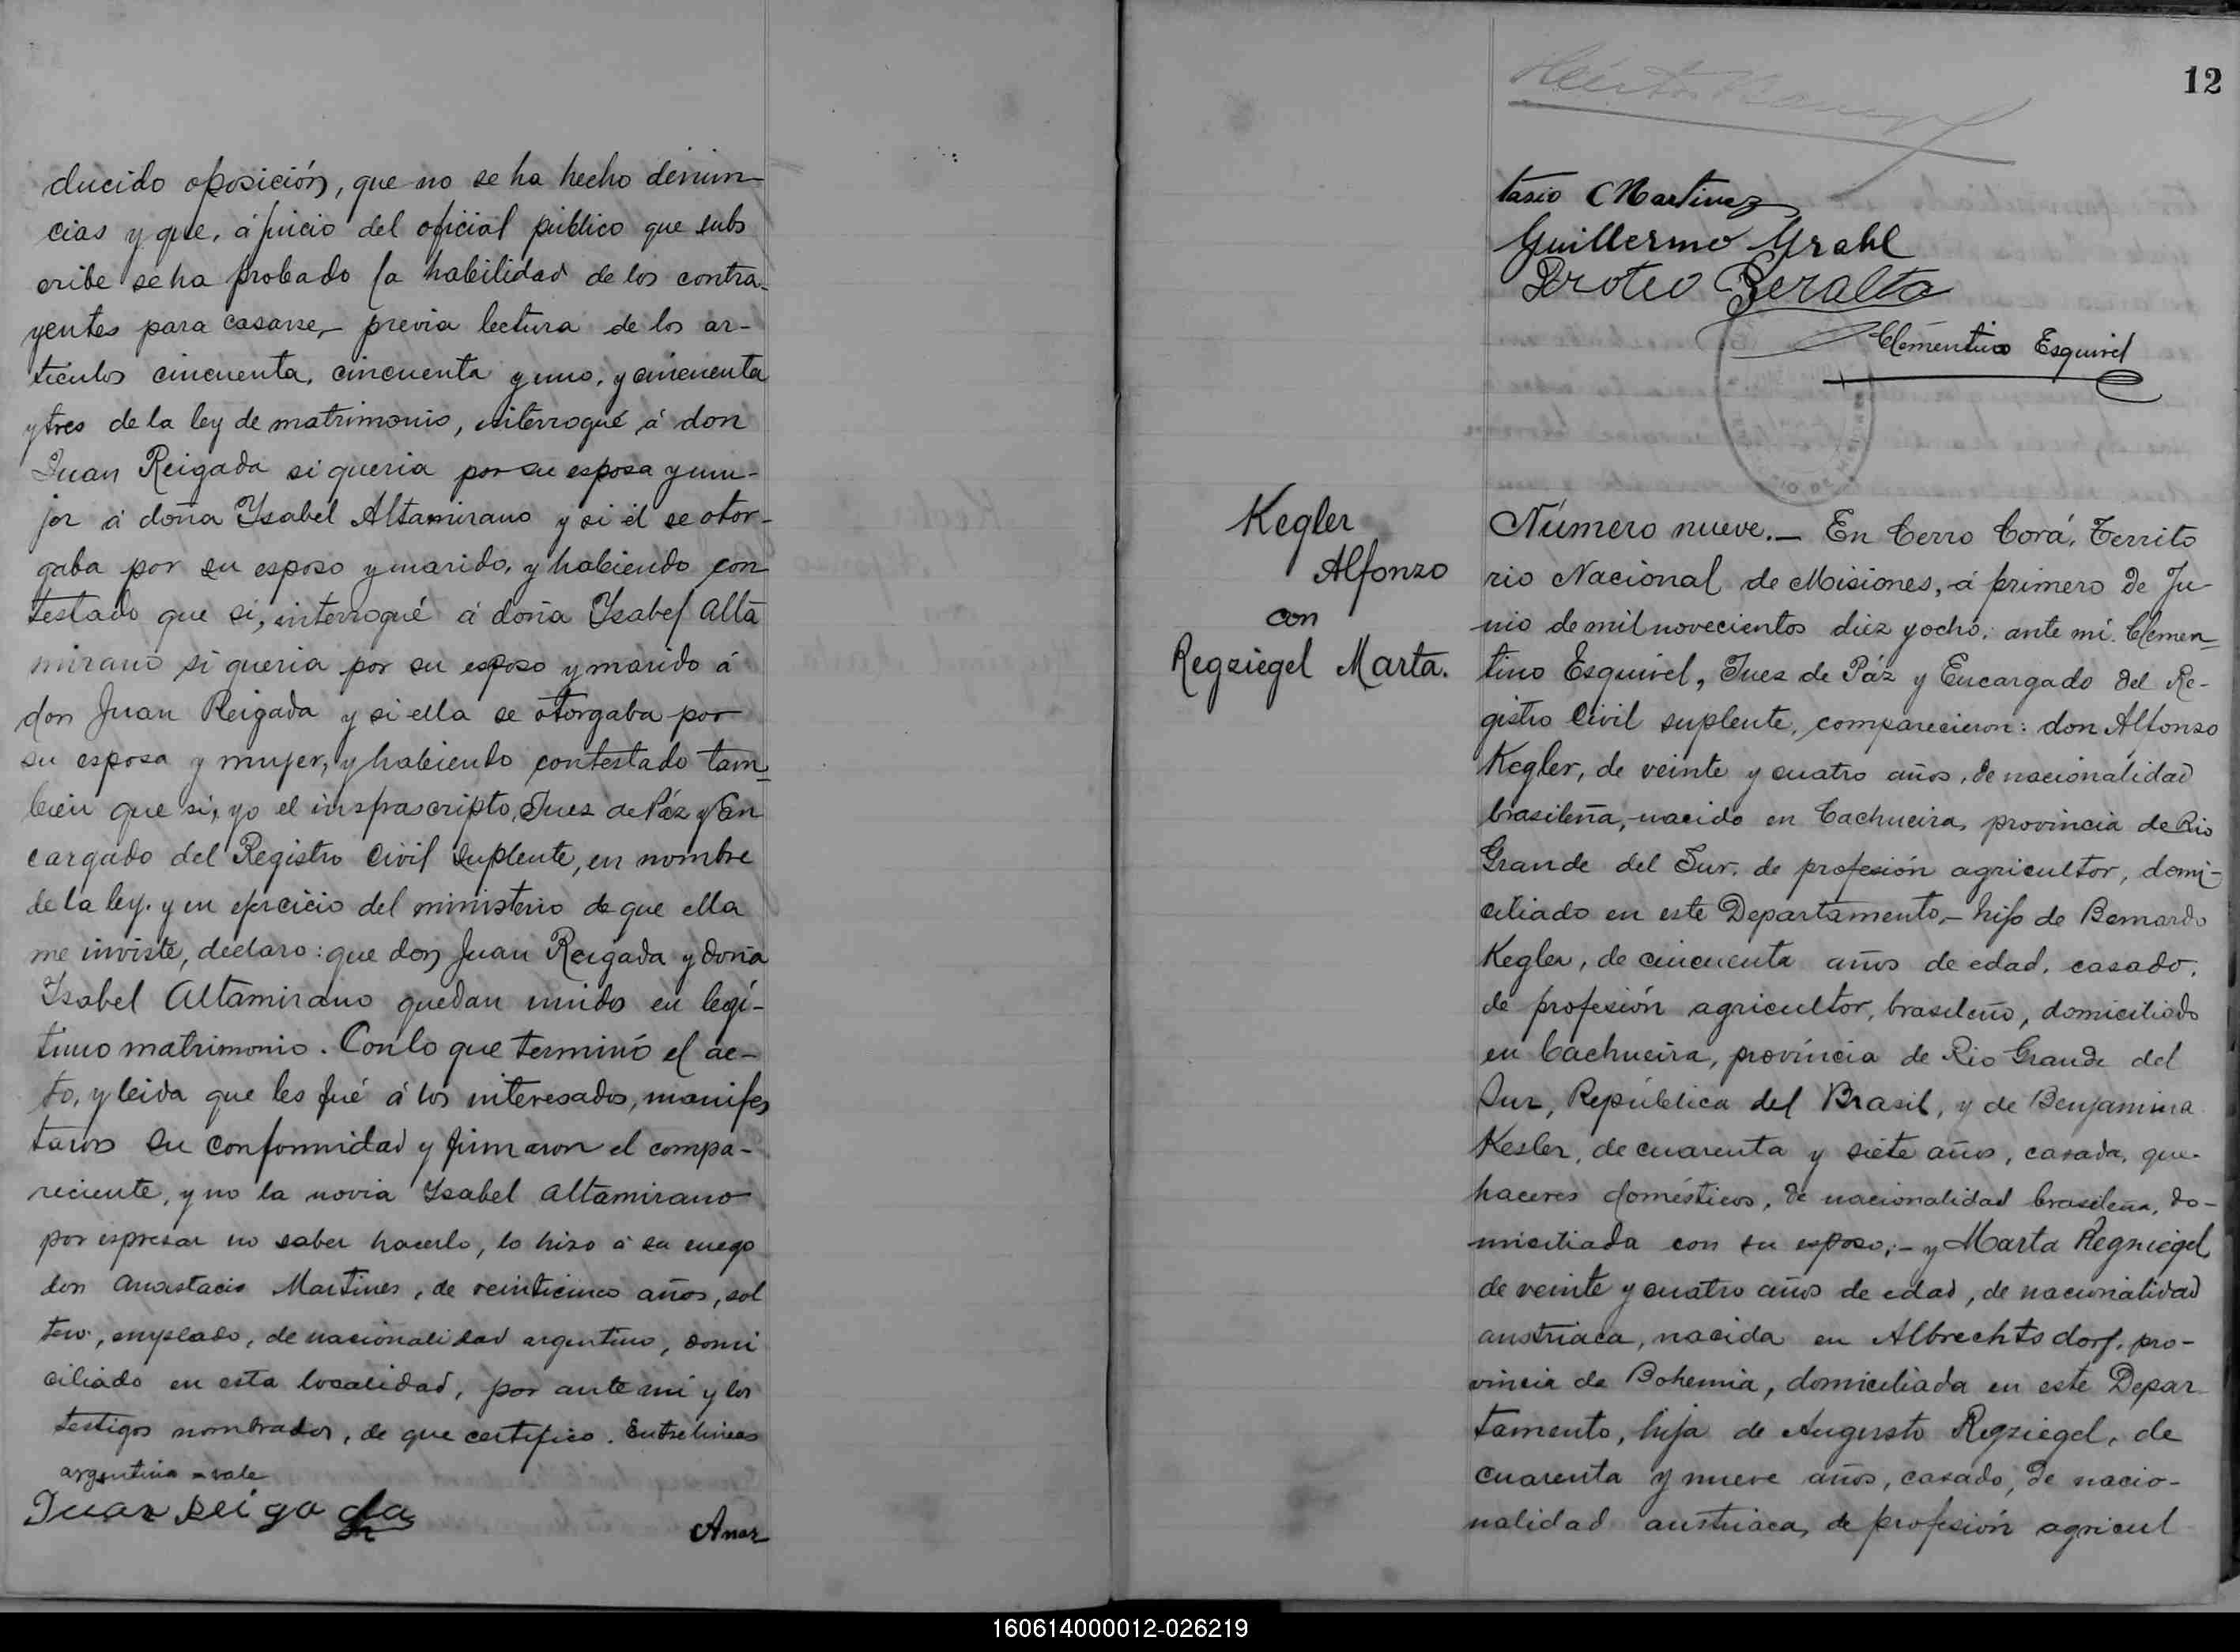 ducido oposición, que no se ha hecho denun-
cias y que, á juicio del oficial público que subs
cribe se ha probado la habilidad de los contra-
yentes para casarse,- previa lectura de los ar-
tículos cincuenta, cincuenta y uno, y cincuenta
y tres de la ley de matrimonio, interrogué á don
Juan Reigada si queria por su esposa y mu-
jer á doña Ysabel Altamirano y si él se otor-
gaba por su esposo y marido, y habiendo con
testado que si, interrogué á doña Ysabel Alta
mirano si queria por su esposo y marido á
don Juan Reigada y si ella se otorgaba por
su esposa y mujer, y habiendo contestado tam-
bien que si, yo el infrascripto, Juez de Páz y En
cargado del Registro Civil Suplente, en nombre
de la ley. y en ejercicio del ministerio de que ella
me inviste, declaro: que don Juan Reigada y doña
Isabel Altamirano quedan unidos en legí-
timo matrimonio. Con lo que terminó el ac-
to, y leida que les fué á los interesados, manifes
taron su conformidad y firmaron el compa-
reciente, y no la novia Ysabel Altamirano
por espresar no saber hacerlo, lo hizo á su ruego
don Anastacio Martines, de veinticinco años, sol
tero, empleado, de nacionalidad argentino, domi
ciliado en esta localidad, por ante mi y los
testigos nombrados, de que certifico. Entrelineas
argentina - vale
Juan Reigada
Anas
12
tasio Martinez
Guillermo Grahl
Proteo Peralta
Clementino Esquivel
Kegler
Alfonzo
con
Regziegel Marta.
Número nueve.- En Cerro Corá, Territo
rio Nacional de Misiones, á primero de Ju
nio de mil novecientos diez y ocho, ante mí Clemen-
tino Esquivel, Juez de Páz y Encargado del Re-
gistro Civil suplente, comparecieron: don Alfonso
Kegler, de veinte y cuatro años, de nacionalidad
brasileña,-nacido en Cachueira, provincia de Rio
Grande del Sur, de profesión agricultor, domi-
ciliado en este Departamento,- hijo de Bernardo
Kegler, de cincuenta años de edad, casado,
de profesión agricultor, brasileño, domiciliado
en Cachueira, província de Rio Grande del
Sur, República del Brasil, y de Benjamina
Kesler, de cuarenta y siete años, casada, que-
haceres domésticos, de nacionalidad brasileña, do-
miciliada con su esposo;- y Marta Regziegel
de veinte y cuatro años de edad, de nacionalidad
austriaca, nacida en Albrechtsdorf, pro-
vincia de Bohemia, domiciliada en este Depar
tamento, hija de Augusto Regziegel, de
cuarenta y nueve años, casado, de nacio-
nalidad austriaca, de profesión agricul
160614000012-026219